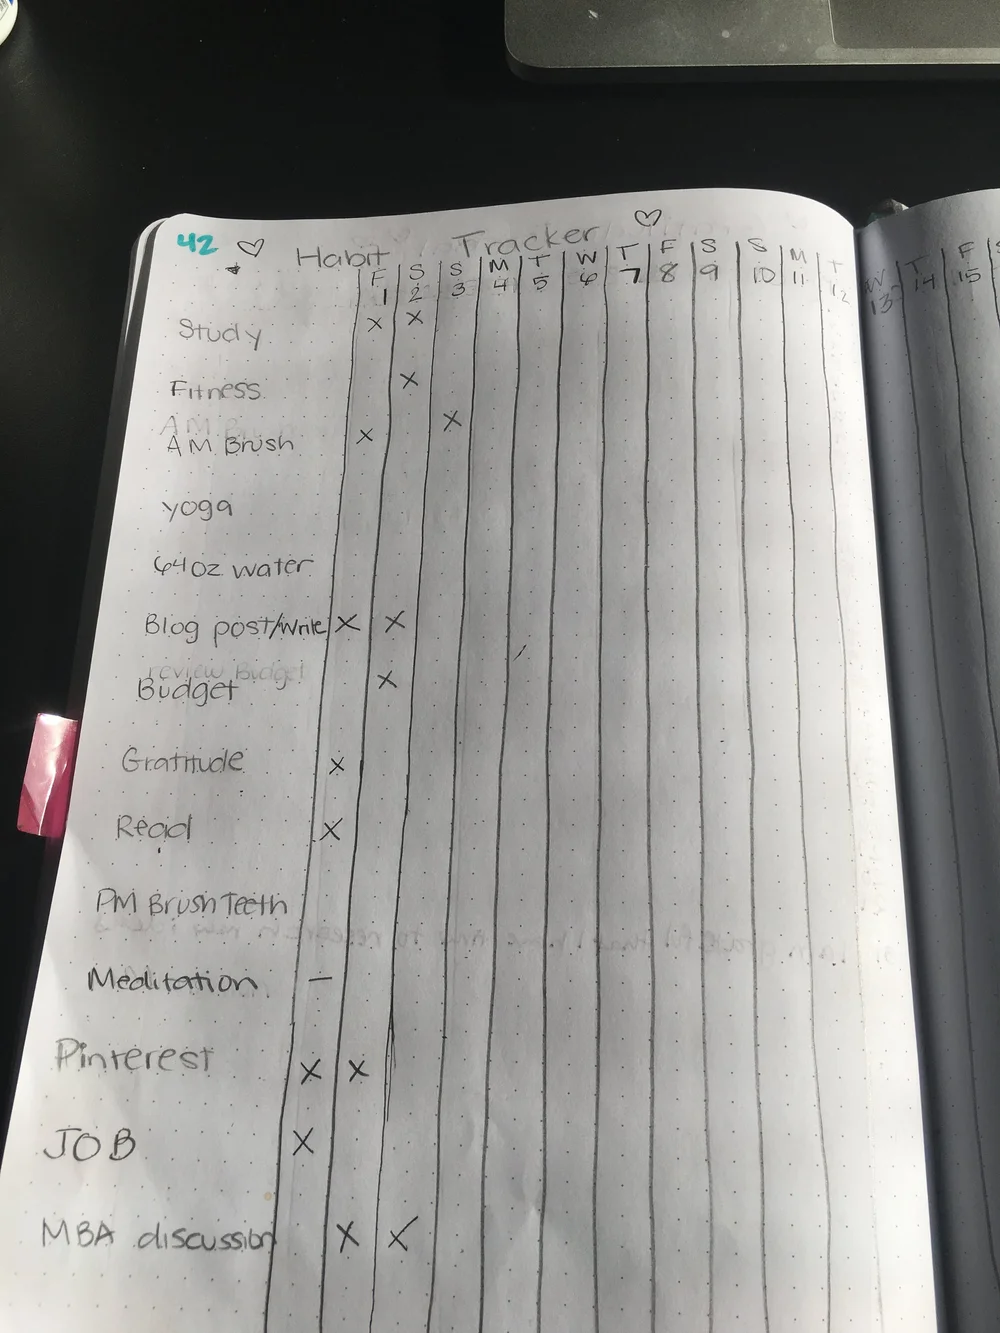 42 Habit Tracker
F S S M T W T F S S M T W T F
1 2 3 4 5 6 7 8 9 10 11 12 13 14 15
Study X X
Fitness X
AM Brush X X
yoga
64oz water
Blog post/write X X
review Budget
Budget X
Gratitude X
Read X
PM Brush Teeth
Meditation –
Pinterest X X
JOB X
MBA discussion X X